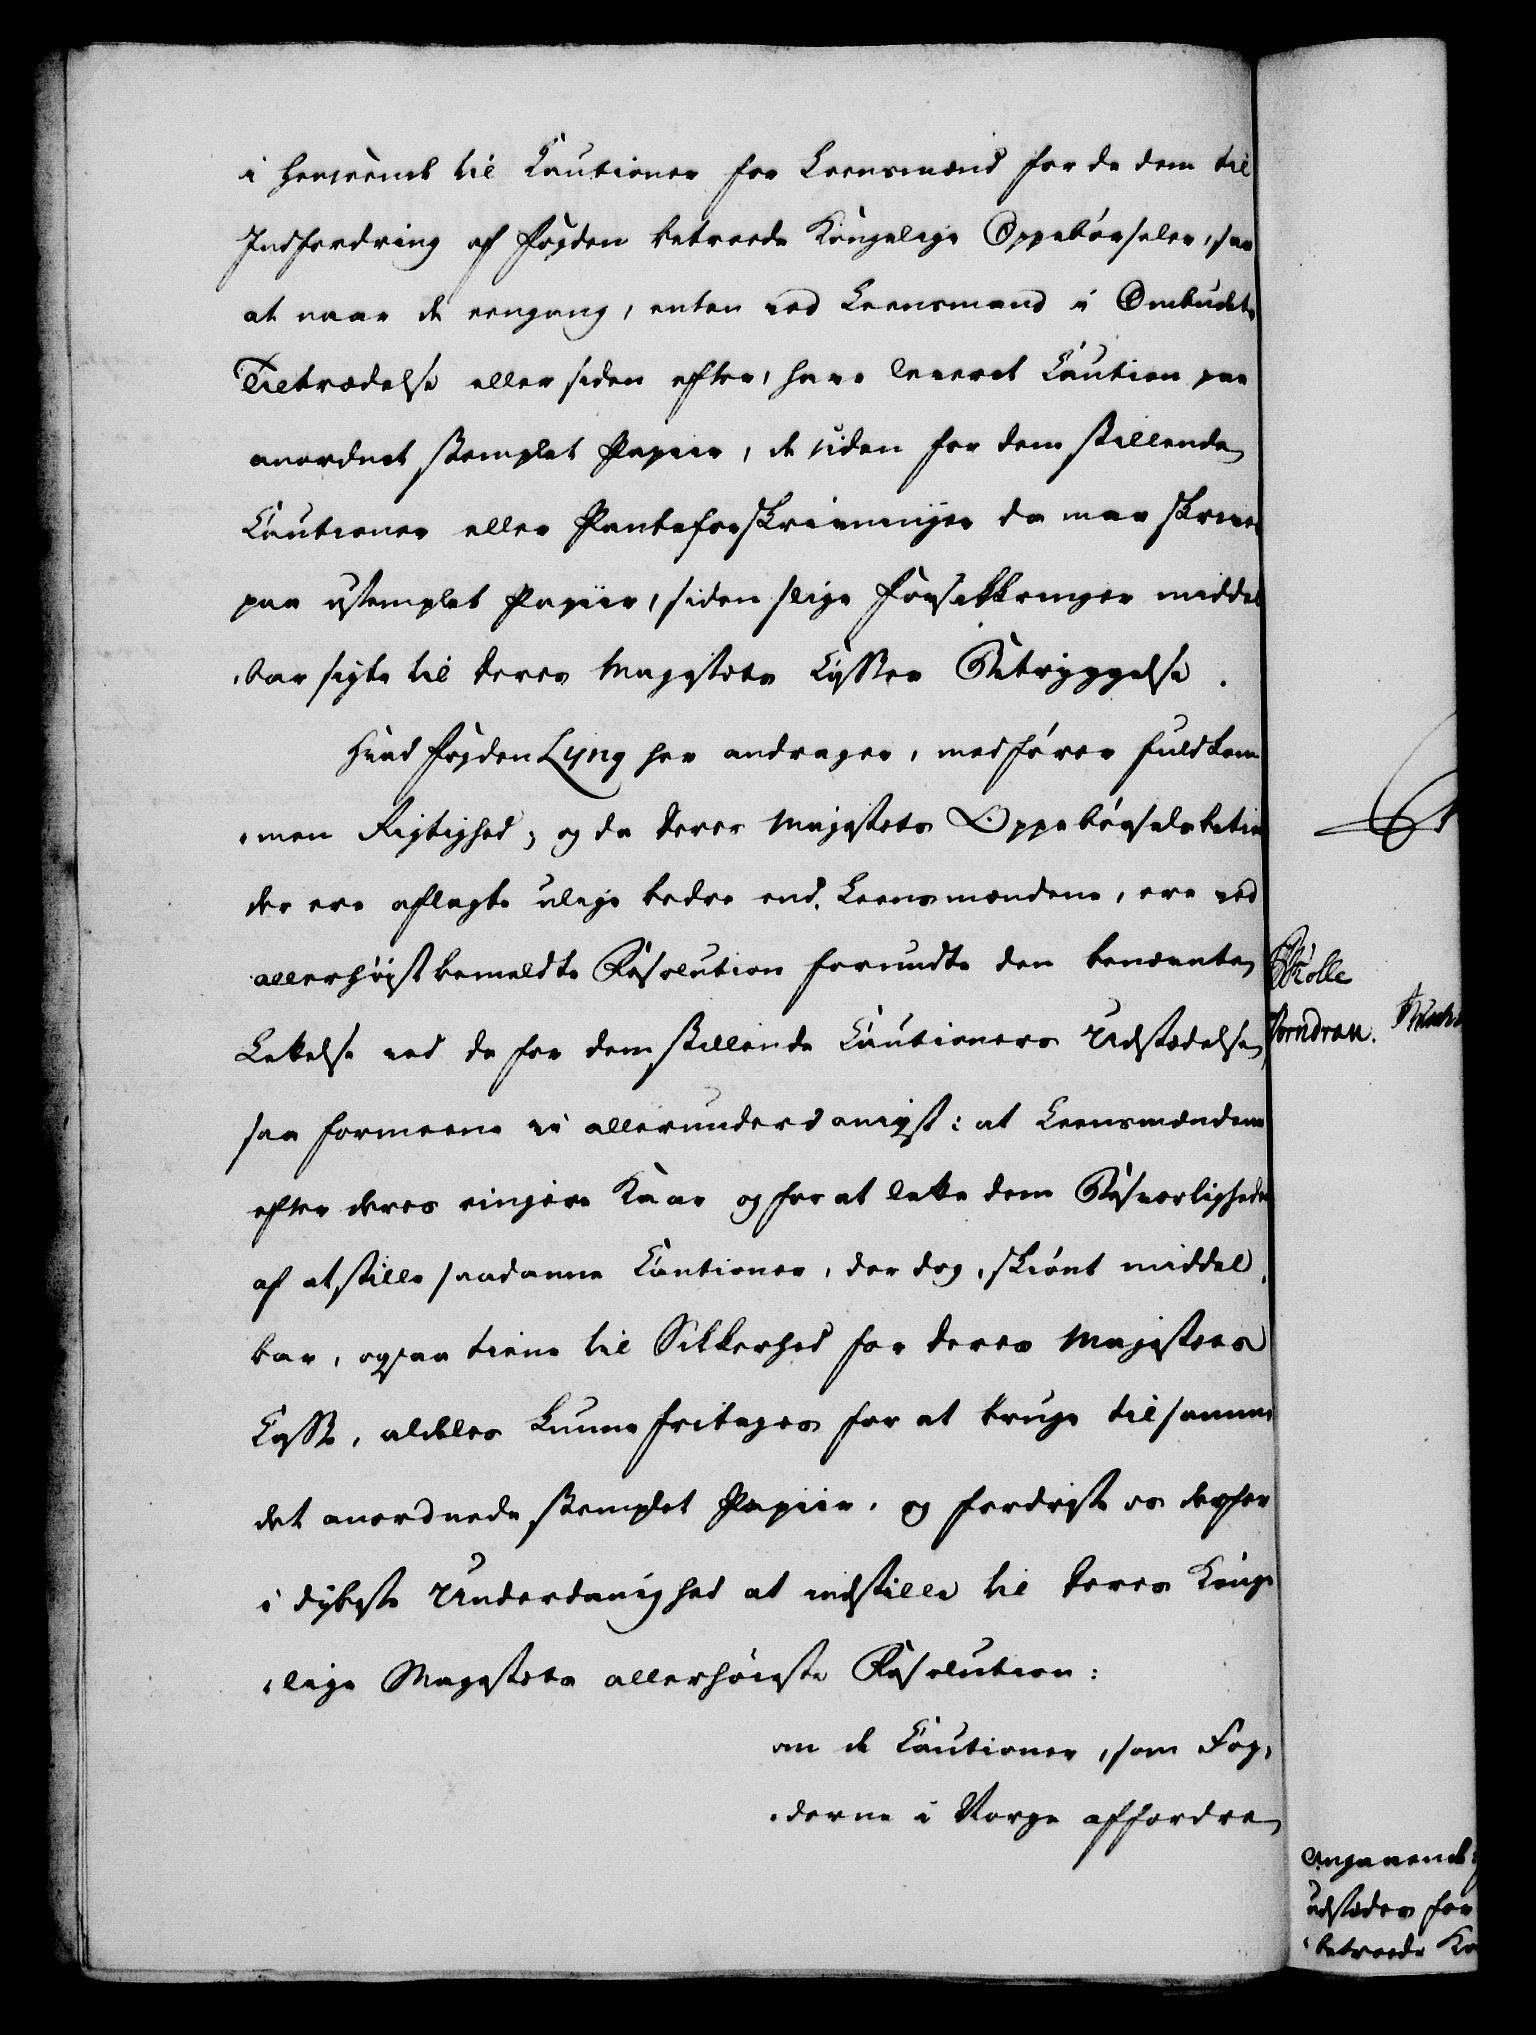 i Henseende til Cautioner for Leensmænd for de dem til
Indfordring af Fogden betroede Kongelige Oppebørseler, saa
at naar de eengang, enten ved Leensmand i Ombudets
Tiltrædelse eller siden efter, have leveret Caution paa
anordnet stemplet Papiir, de siden for dem stillende
Cautioner eller Panteforskrivninger da maa skrives
paa ustemplet Papiir, siden slige Forsikkringer middel
bar sigte til Deres Majestæts Cassers Betryggelse.
Hvad Fogden Lyng her andrager, medfører fuldkom
men Rigtighed; og da Deres Majestets Oppebørselsbetien
der ere aflagte ulige bedre end Leensmændene, ere ved
allerhøist bemeldte Resolution forundte den benævnte
Lettelse ved de for dem stillende Cautioners Udstædelse
saa formeene vi allerunderdanigst: at Leensmændene
efter deres ringere Kaar og for at lette dem Besværligheden
af at stille saadanne Cautioner, der dog, skiønt middel
bar, ogsaa tiene til Sikkerhed for Deres Majestets
Casse, aldeles kunne fritages for at bruge til samme
det anordnede stemplet Papiir, og fordriste os derfor
i dybeste Underdanighed at indstille til Deres Konge
lige Majestets allerhøieste Resolution:
om de Cautioner, som Fog,
derne i Norge affordre
Skølle
Vorndran.
Angaaende
udstædes for
betroede Ko